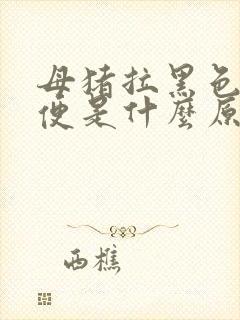 母猪拉黑色
便是什麼原
西樵